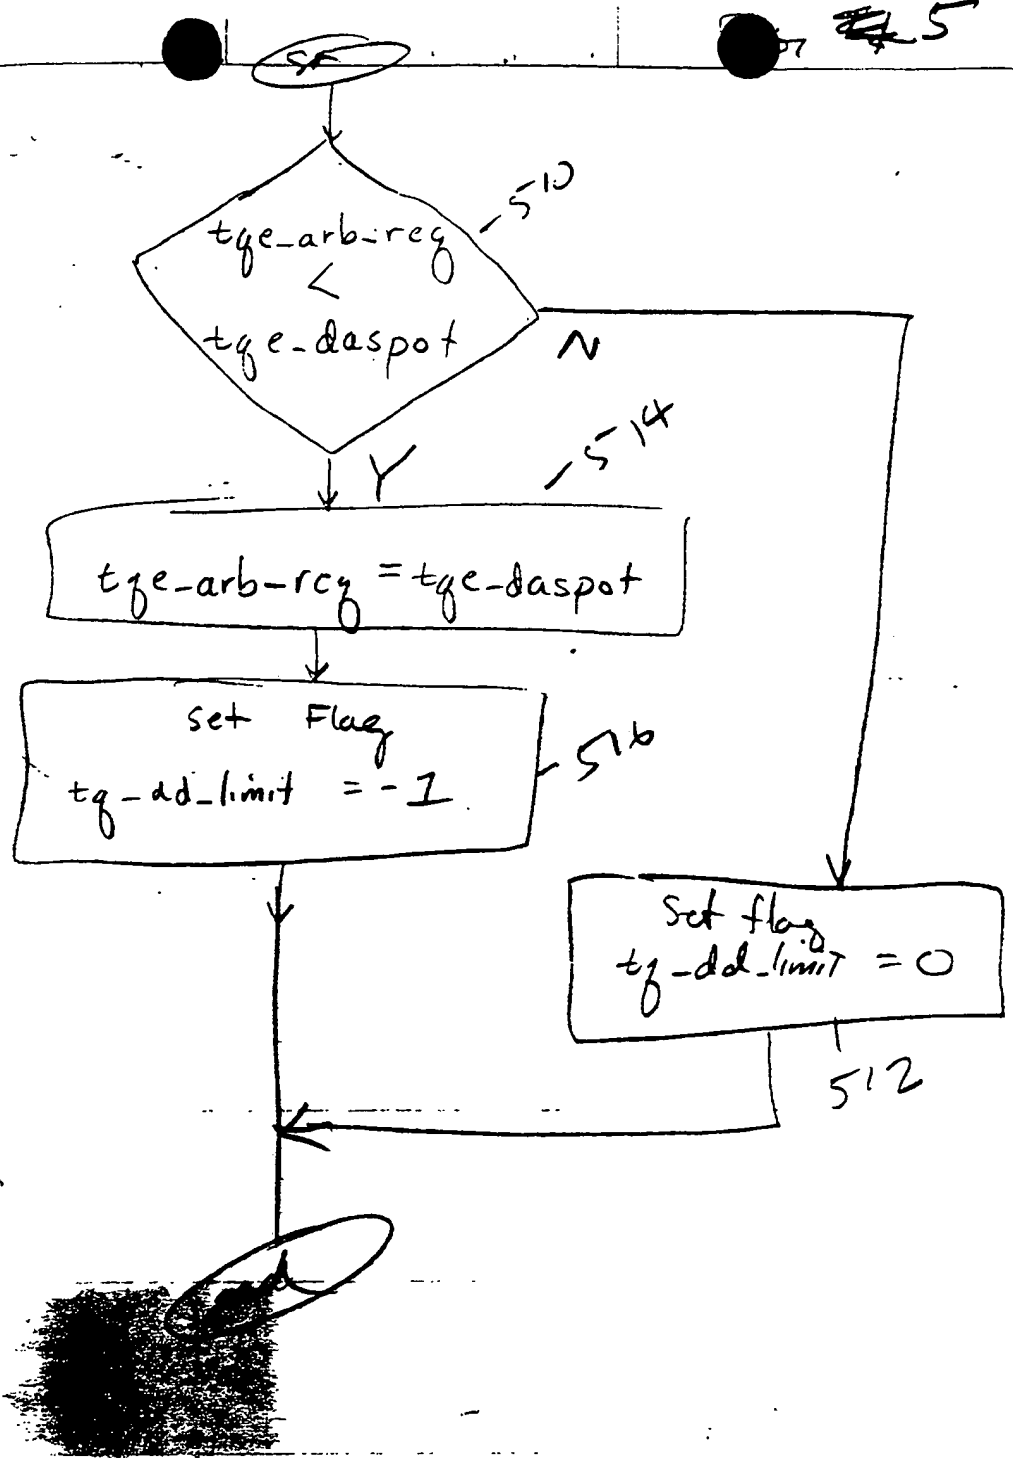 5
510
tqe_arb_req
<
tqe_daspot
N
Y
514
tqe_arb_req = tqe_daspot
set Flag
tq_dd_limit = -1
516
Set flag
tq_dd_limit = 0
512
end